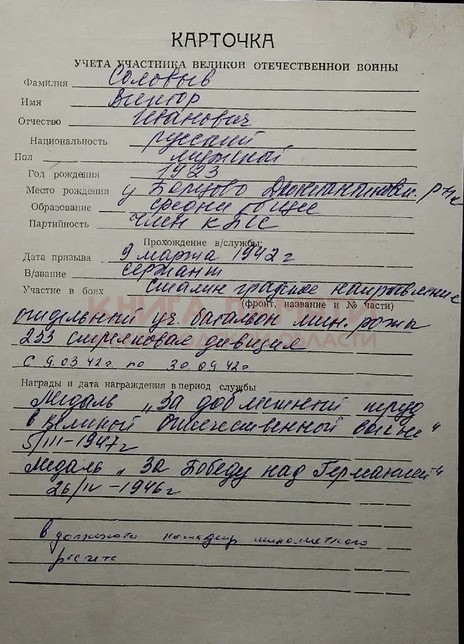 КАРТОЧКА
УЧЕТА УЧАСТНИКА ВЕЛИКОЙ ОТЕЧЕСТВЕННОЙ ВОЙНЫ
Фамилия Соловьев
Имя Виктор
Отчество Иванович
Национальность русский
Пол мужской
Год рождения 1923
Место рождения р-н
Образование среднее общее
Партийность член КПСС
Прохождение в/службы:
Дата призыва 9 марта 1942 г
В/звание сержант
Участие в боях сталинградское направление
(фронт, название и № части)
КНИГА ПАМЯТИ
ОБЛАСТИ
отдельный уч. батальон мин. рота
233 стрелковая дивизия
с 9.03 42 г. по 30.09 42 г.
Награды и дата награждения в период службы
Медаль „За доблестный труд
в Великой Отечественной войне"
5/III-1947 г
Медаль „За Победу над Германией"
26/IV-1946 г
в должности командир минометного
расчета